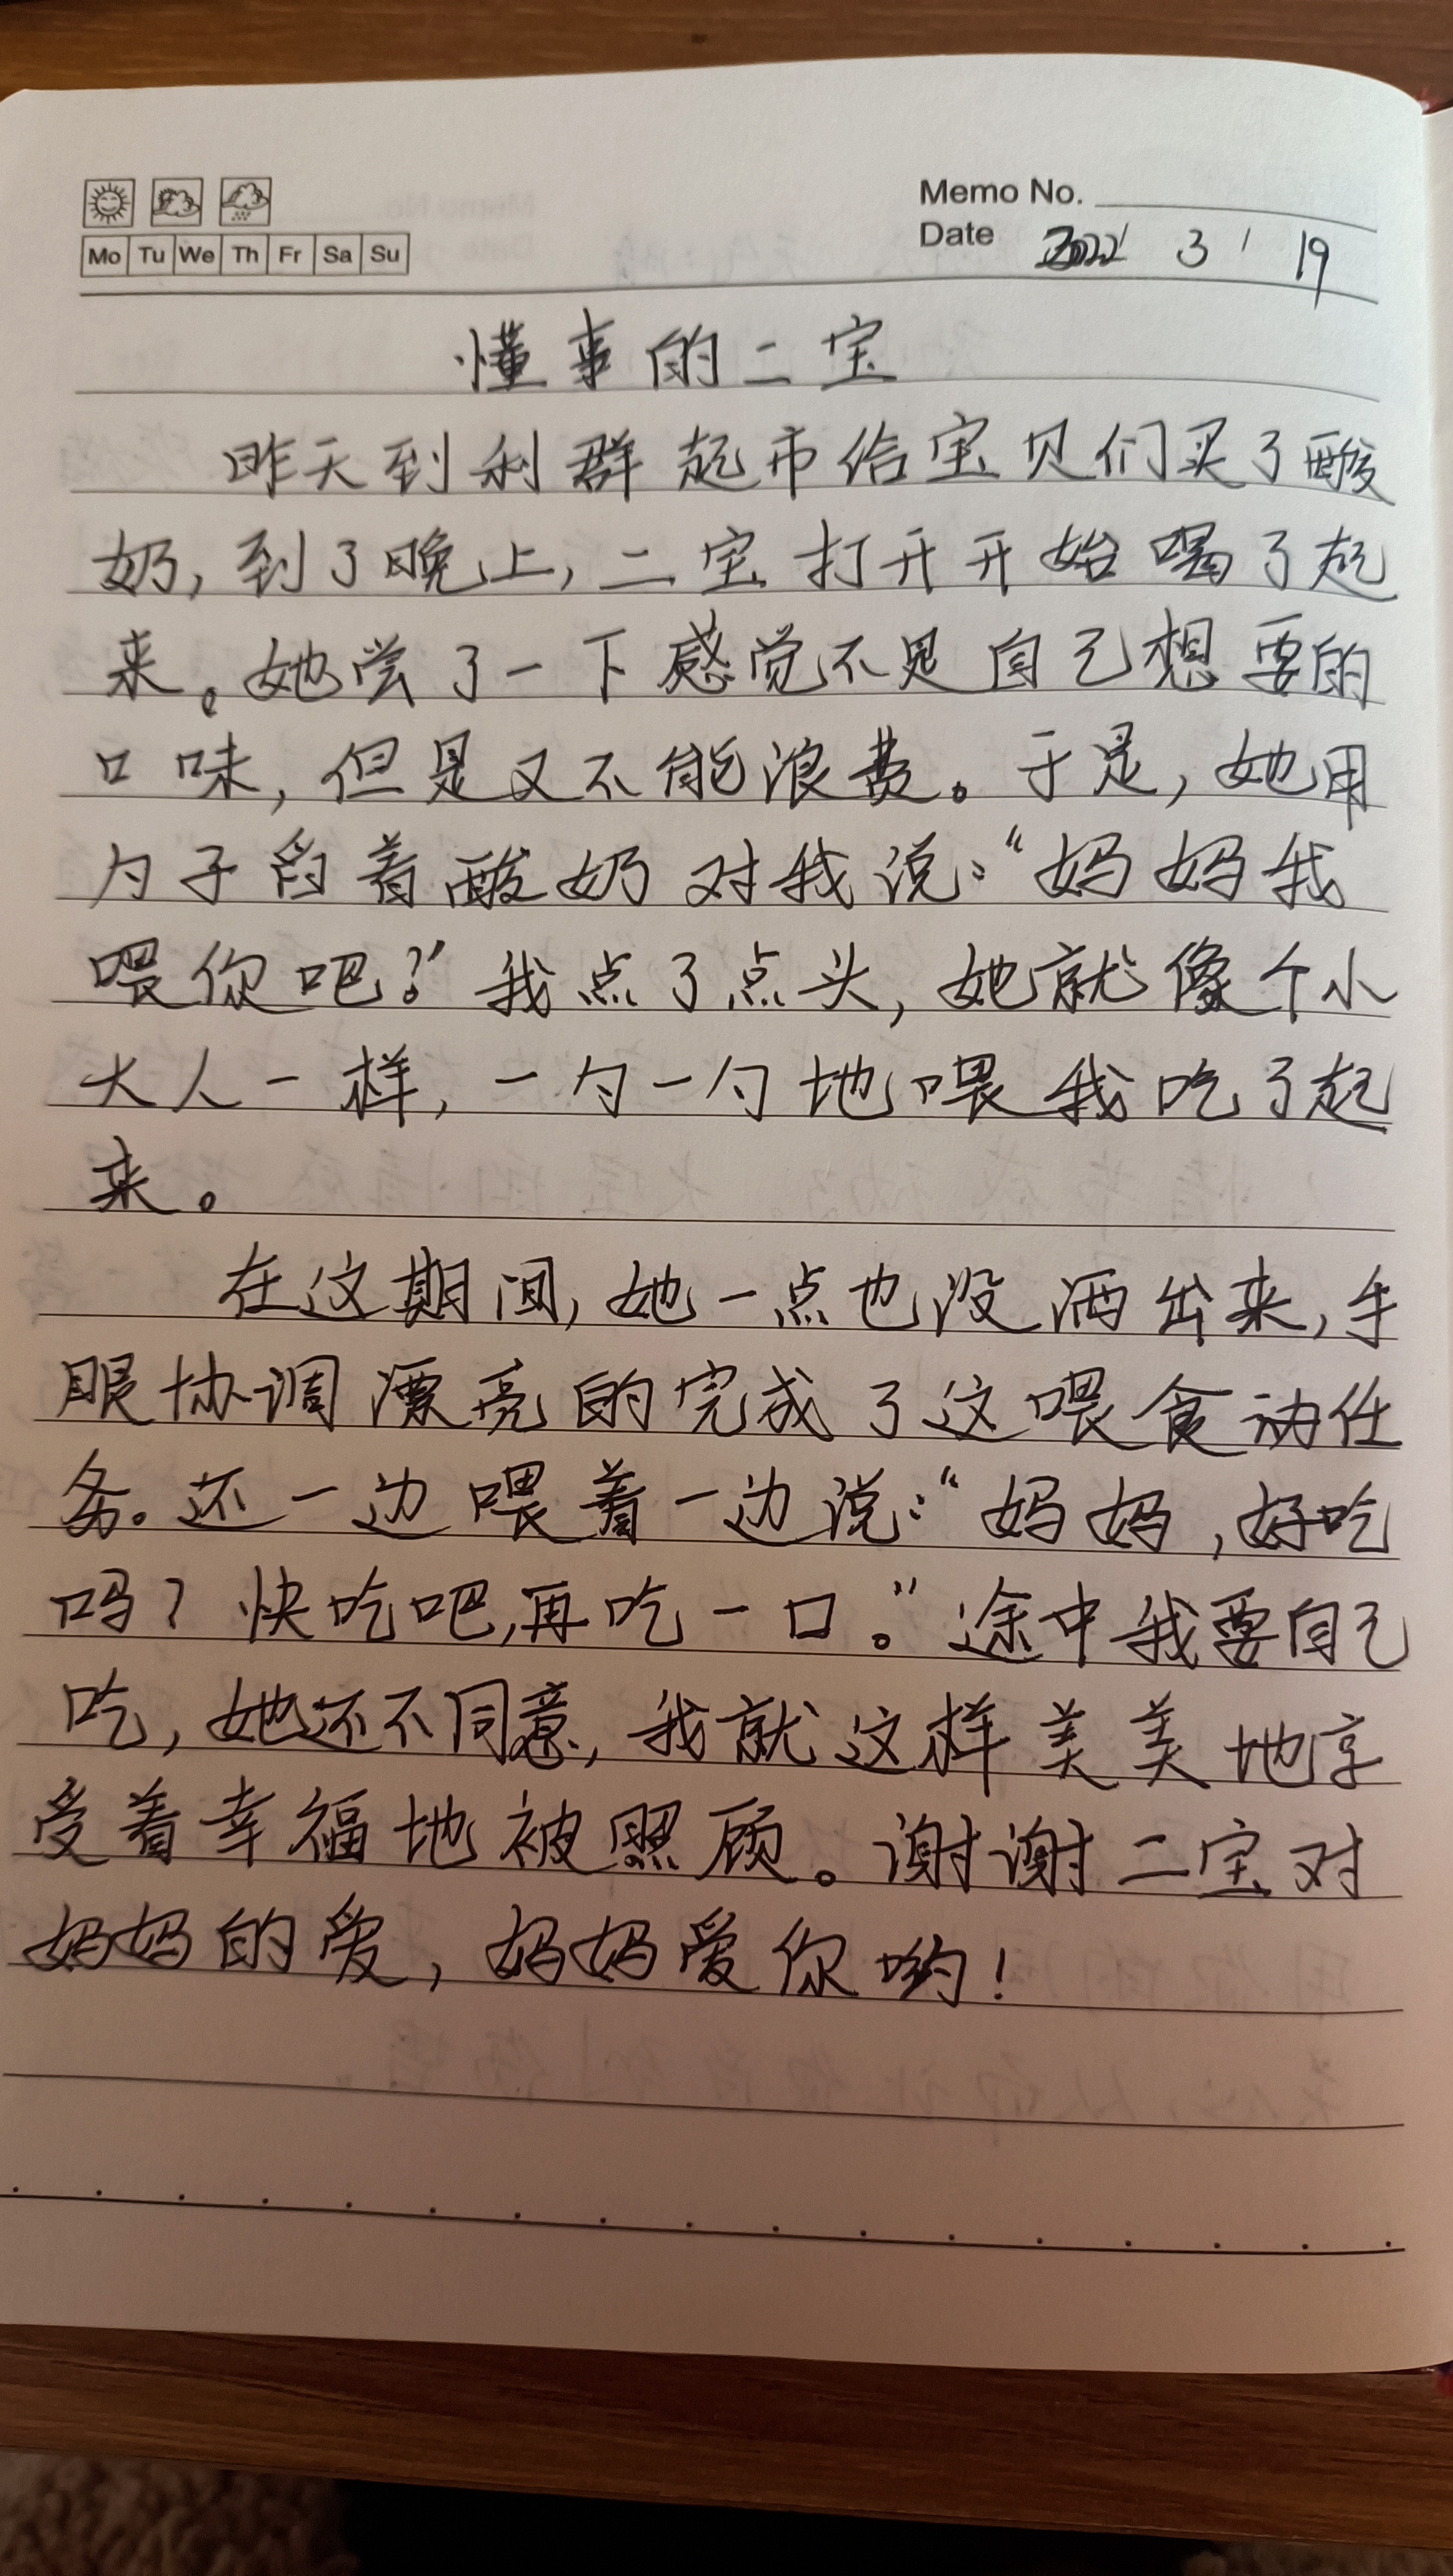 Memo No.
Date 2022 / 3 / 19
Mo Tu We Th Fr Sa Su
懂事的二宝
昨天到利群超市给宝贝们买了酸
奶，到了晚上，二宝打开开始喝了起
来。她尝了一下感觉不是自己想要的
口味，但是又不能浪费。于是，她用
勺子舀着酸奶对我说：“妈妈我
喂你吧？”我点了点头，她就像个小
大人一样，一勺一勺地喂我吃了起
来。
在这期间，她一点也没洒出来，手
眼协调漂亮的完成了这喂食动任
务。还一边喂着一边说：“妈妈，好吃
吗？快吃吧，再吃一口。”途中我要自己
吃，她还不同意，我就这样美美地享
受着幸福地被照顾。谢谢二宝对
妈妈的爱，妈妈爱你哟！